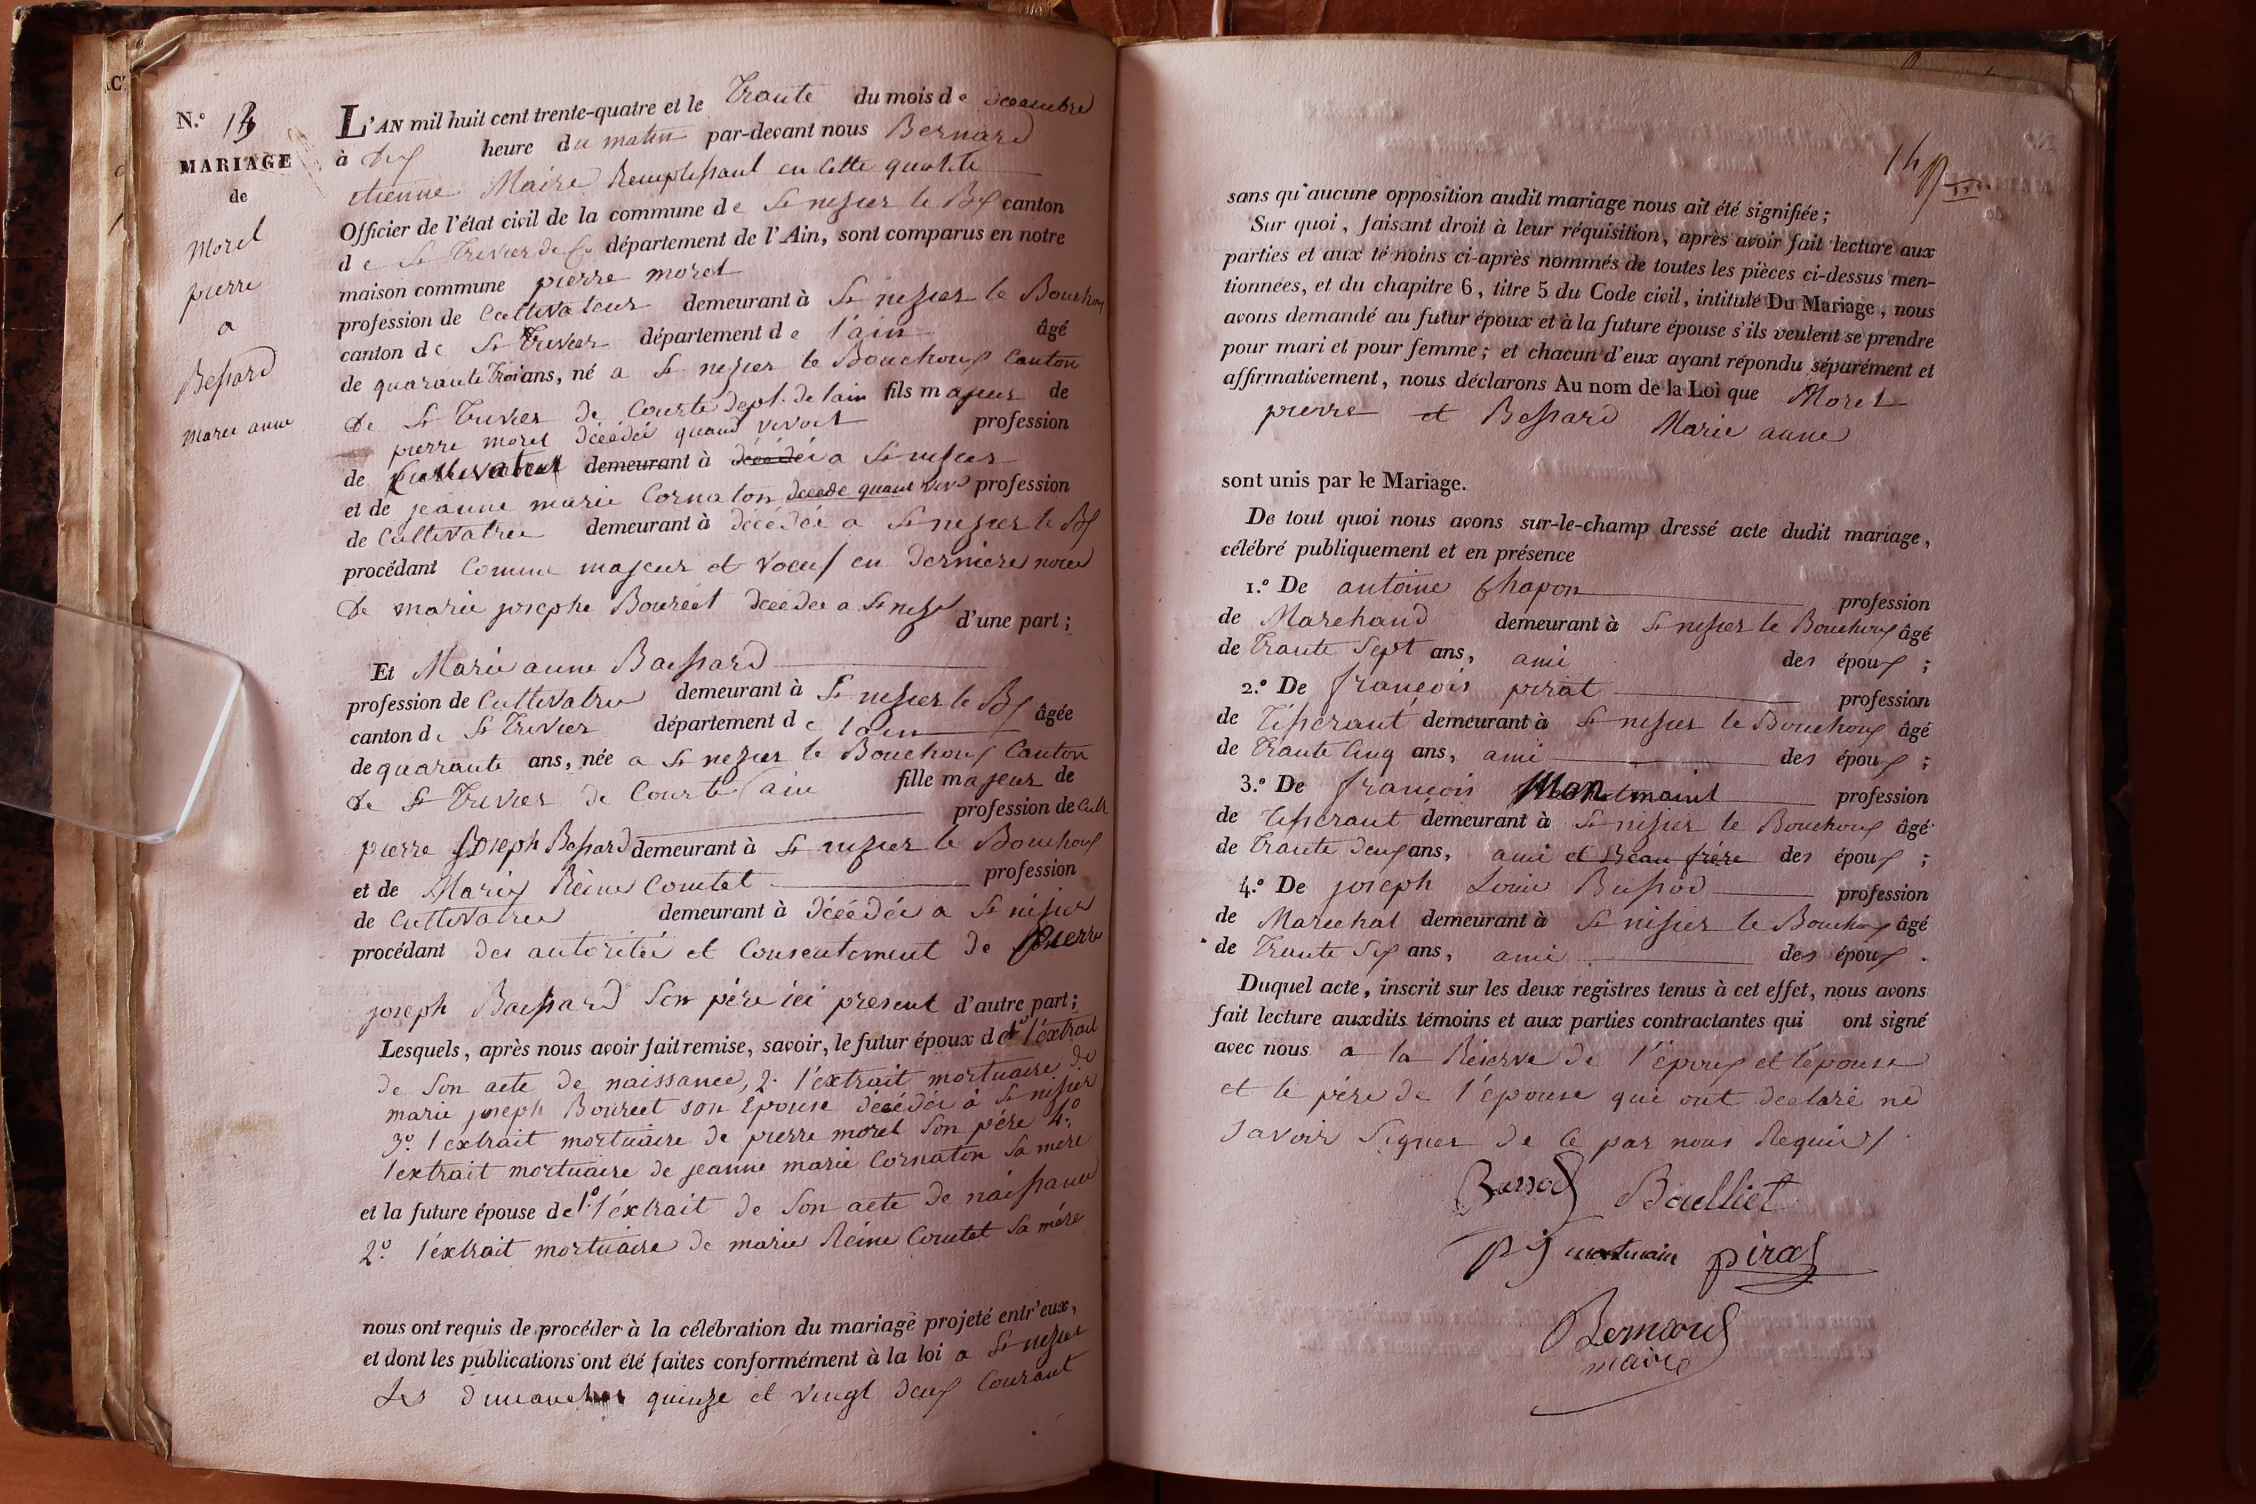 N.º 13
MARIAGE
de
Morel
pierre
a
Bessard
Marie anne
L'AN mil huit cent trente-quatre et le Trante du mois de décembre
à dix heure du matin par-devant nous Bernard
etienne Maire Remplissant en Cette qualité
Officier de l'état civil de la commune de St nizier le Bx canton
de St Trivier de Cs département de l'Ain, sont comparus en notre
maison commune pierre morel
profession de Cultivateur demeurant à St nizier le Bouchoux
canton de St Trivier département de l'ain âgé
de quarante Trois ans, né a St nizier le Bouchoux Canton
de St Trivier de Courte dept. de lain fils majeur de
pierre morel décédé quand vivoit profession
de Cultivateur demeurant à décédé a St nizier
et de jeanne marie Cornaton décédé quand viv profession
de Cultivatrice demeurant à décédée a St nizier le Bx
procédant Comme majeur et voeuf en derniere noce
de marie josephe Boureet décédée a St nizier d'une part ;
Et Marie anne Baessard
profession de Cultivatrice demeurant à St nizier le Bx
canton de St Trivier département de lain âgée
de quarante ans, née a St nizier le Bouchoux Canton
de St Trivier de Courte ain fille majeur de
profession de Cult
pierre Joseph Bessard demeurant à St nizier le Bouchoux
et de Marie Reine Comtet profession
de Cultivatrice demeurant à décédée a St nizier
procédant des autorités et Consentement de pierre
joseph Baessard Son père ici present d'autre part ;
Lesquels, après nous avoir fait remise, savoir, le futur époux de 1º l'éxtrait
de Son acte de naissance, 2. l'éxtrait mortuaire de
marie joseph Boureet son Epouse décédée à St nizier
3º. l'extrait mortuaire de pierre morel Son père 4º.
l'extrait mortuaire de jeanne marie Cornaton Sa mere
et la future épouse de 1º. l'éxtrait de Son acte de naissance
2º. l'éxtrait mortuaire de marie Réine Comtet Sa mére
nous ont requis de procéder à la célébration du mariage projeté entr'eux,
et dont les publications ont été faites conformément à la loi a St nizier
Les dimanches quinze et vingt deux Courant
14
sans qu'aucune opposition audit mariage nous ait été signifiée ;
Sur quoi, faisant droit à leur réquisition, après avoir fait lecture aux
parties et aux témoins ci-après nommés de toutes les pièces ci-dessus men-
tionnées, et du chapitre 6, titre 5 du Code civil, intitulé Du Mariage, nous
avons demandé au futur époux et à la future épouse s'ils veulent se prendre
pour mari et pour femme ; et chacun d'eux ayant répondu séparément et
affirmativement, nous déclarons Au nom de la Loi que Morel
pierre et Bessard Marie anne
sont unis par le Mariage.
De tout quoi nous avons sur-le-champ dressé acte dudit mariage,
célébré publiquement et en présence
1.º De antoine Chapon profession
de Marchand demeurant à St nizier le Bouchoux âgé
de Trante Sept ans, ami des époux ;
2.º De françois pirat profession
de Tisserant demeurant à St nizier le Bouchoux âgé
de Trante Cinq ans, ami des époux ;
3.º De françois Montmaint profession
de tisserant demeurant à St nizier le Bouchoux âgé
de Trante deux ans, ami et Beau frére des époux ;
4.º De joseph Louis Bussod profession
de Marechal demeurant à St nizier le Bouchoux âgé
de Trante Six ans, ami des époux.
Duquel acte, inscrit sur les deux registres tenus à cet effet, nous avons
fait lecture auxdits témoins et aux parties contractantes qui ont signé
avec nous a la Réserve de l'époux et l'épouse
et le père de l'épouse qui ont declaré ne
Savoir Signer de Ce par nous Requis
Bussod Boulliet
montmain pirat
Bernard
maire